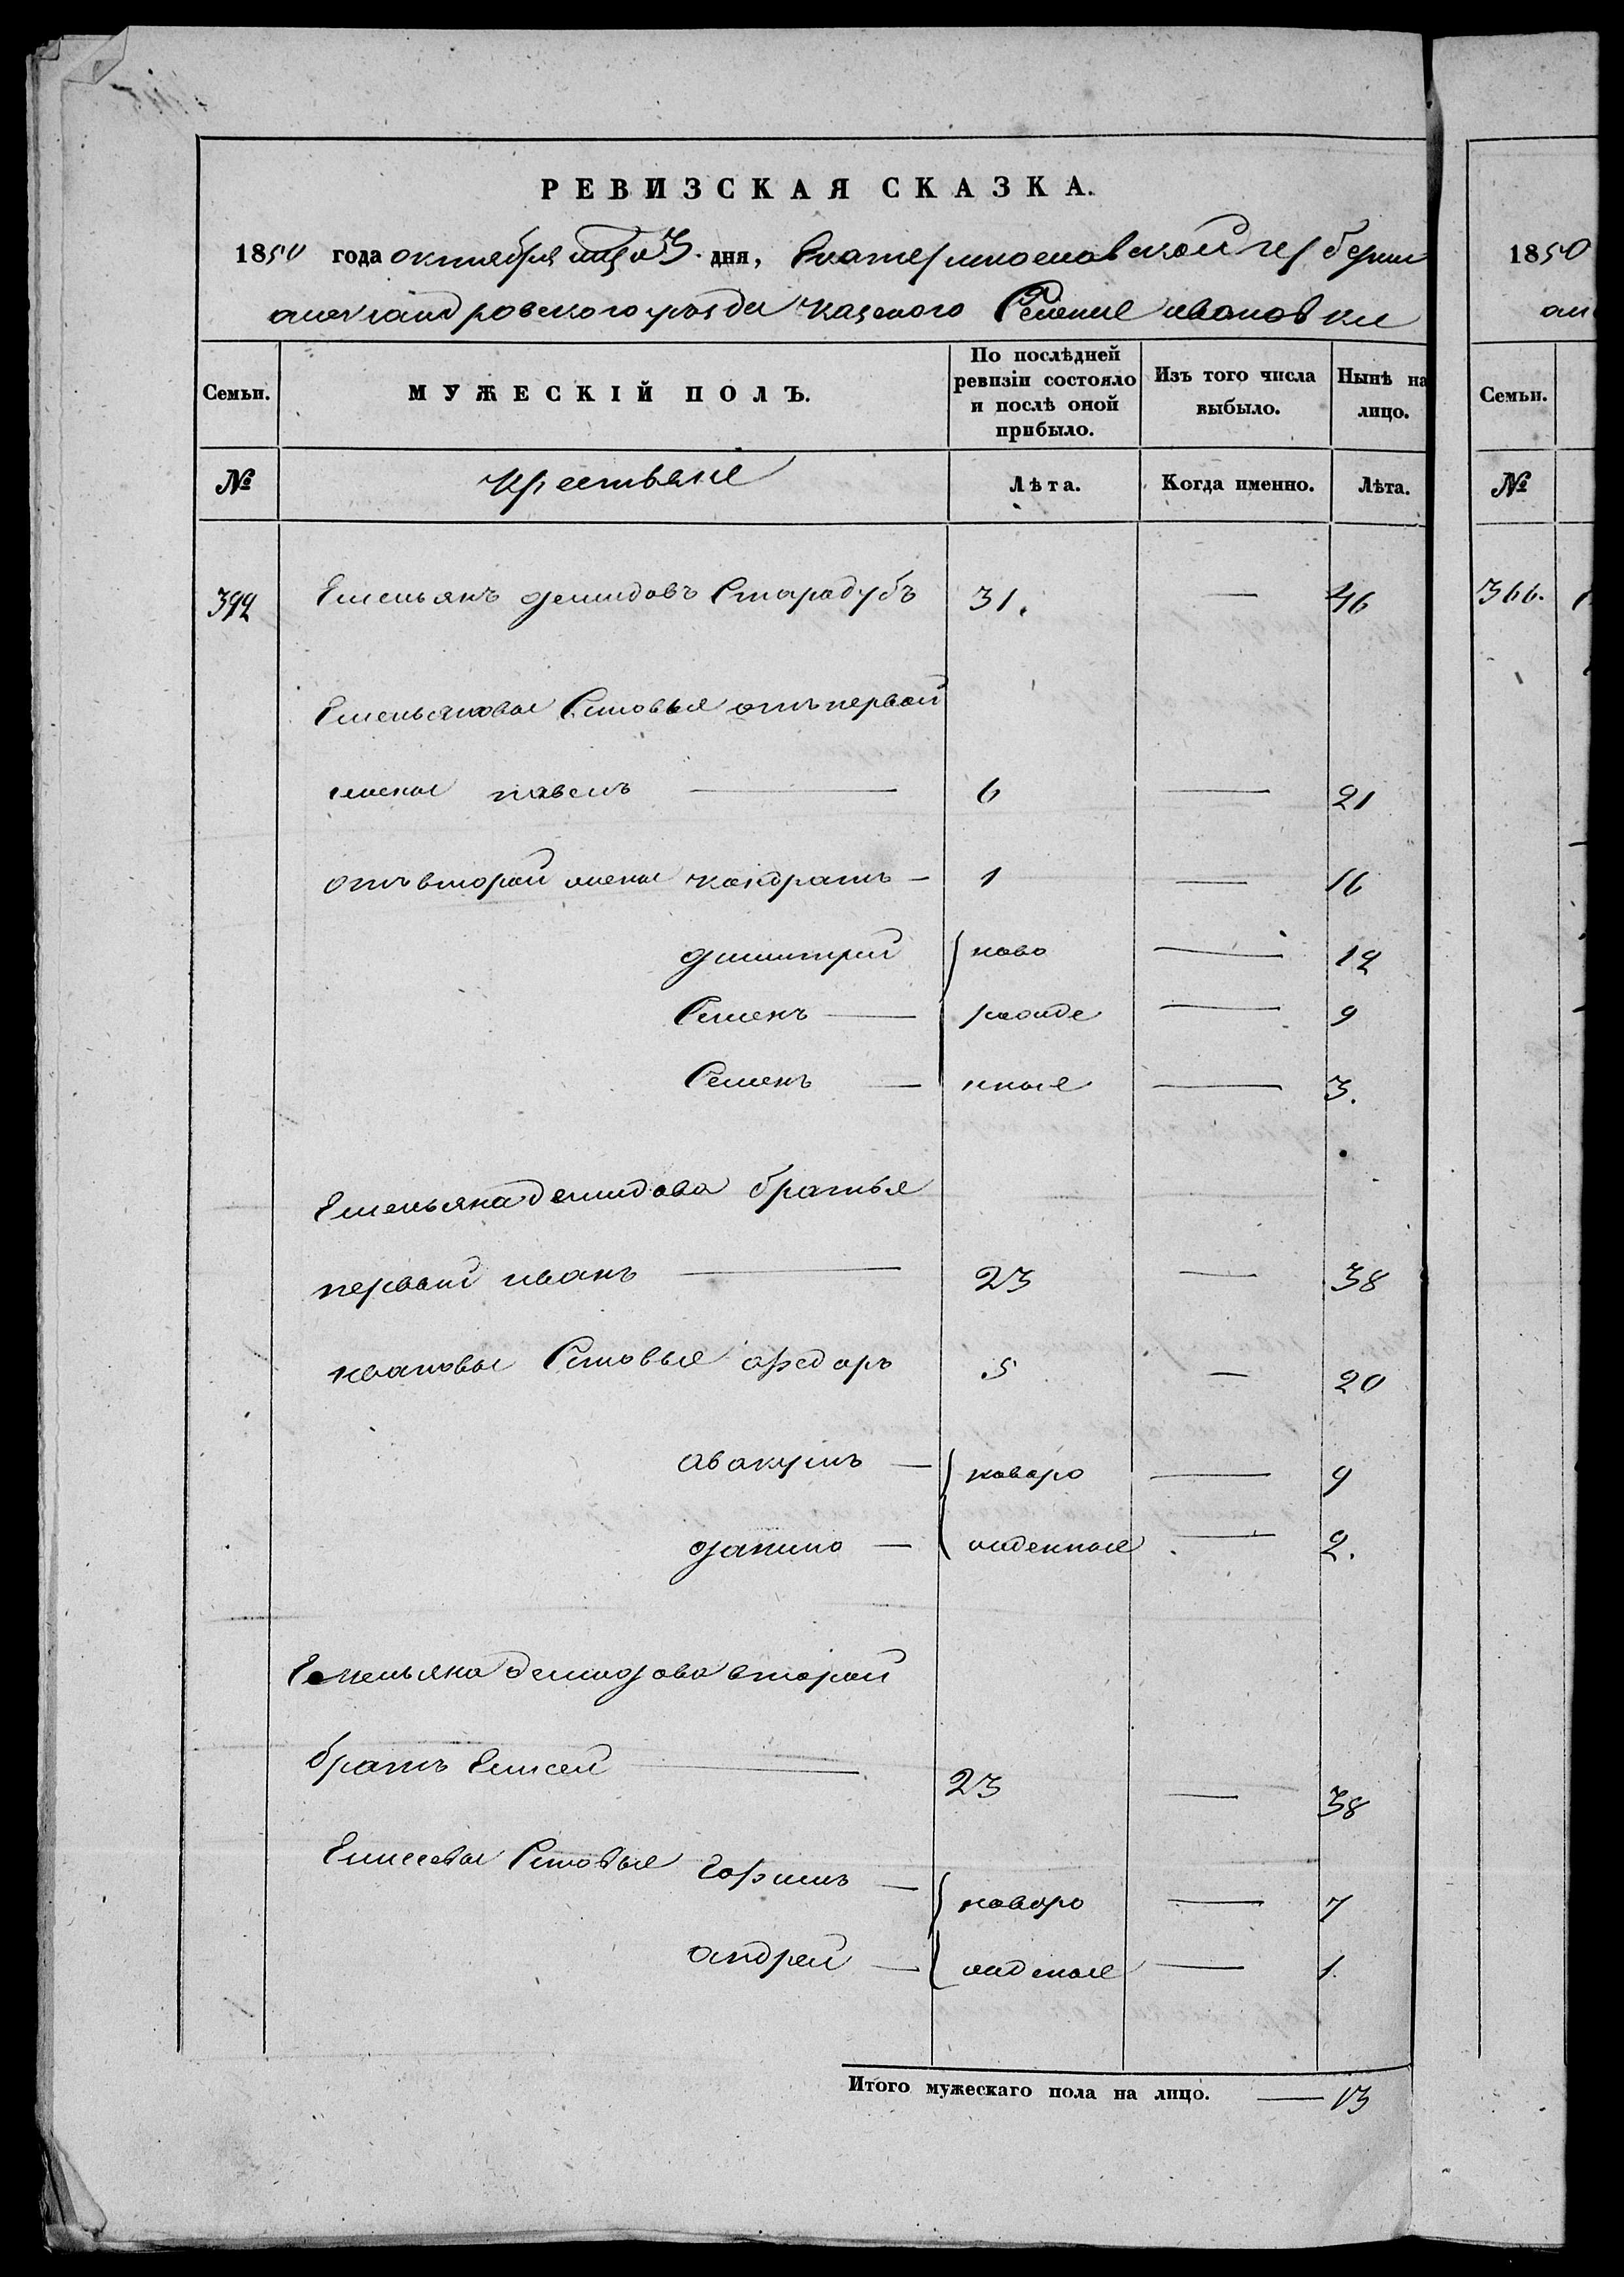 РЕВИЗСКАЯ СКАЗКА.
1850 года октября 3 дня, Екатеринославской губернии
александровского уезда казеного Селение ивановки
Семьи. МУЖЕСКІЙ ПОЛЪ. По послѣдней ревизіи состояло и послѣ оной прибыло. Изъ того числа выбыло. Нынѣ на лицо.
№ крестьяне Лѣта. Когда именно. Лѣта.
392 Емельянъ демидовъ Старадубъ 31. — 46
Емельяновы Сыновья отъ первой
жены павелъ — 6 — 21
отъ второй жены кондратъ — 1 — 16
дмитрий ново — 12
Семенъ — рожде — 9
Семенъ — нные — 3.
Емельяна демидова братья
первый иванъ — 23 — 38
ивановы Сыновья федоръ 5 — 20
авакумъ — новоро — 9
данило — жденные — 2.
Емельяна демидова второй
братъ Елисей — 23 — 38
Елисеевы Сыновья — новоро — 7
андрей — жденые — 1.
Итого мужескаго пола на лицо. — 13
1850
ал
Семьи.
№
366.